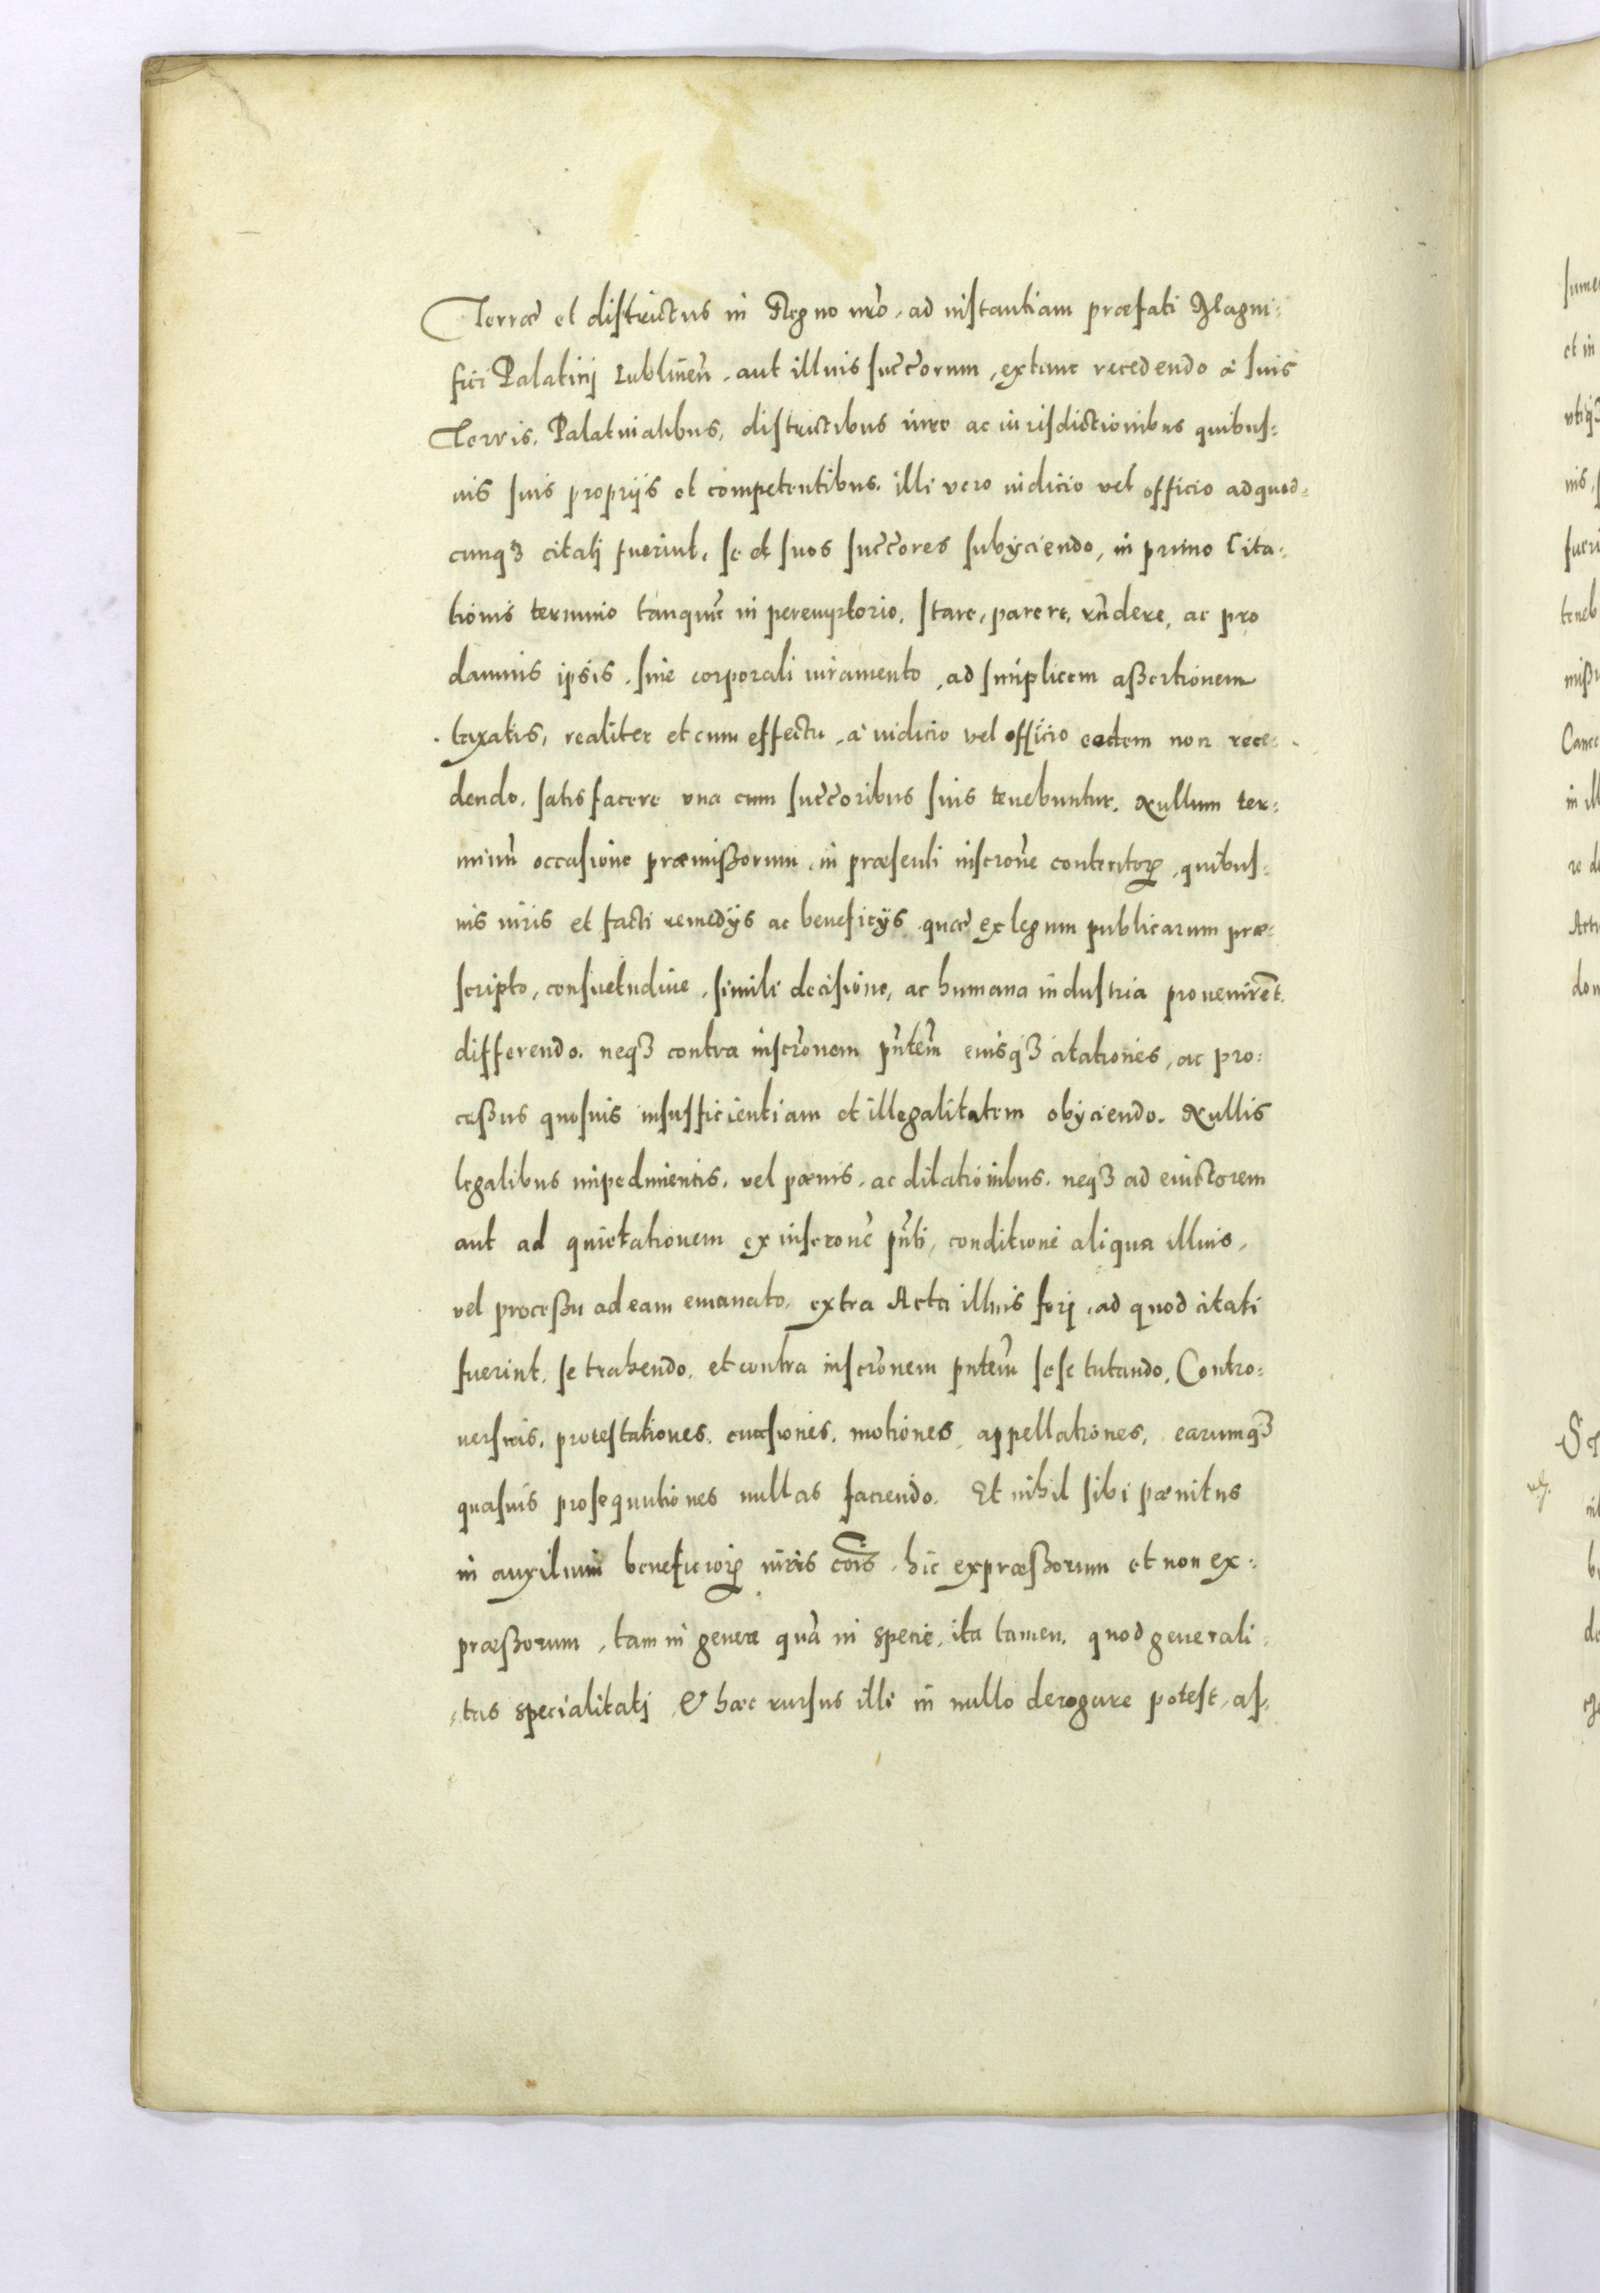 Terræ et districtus in Regno nr̃o, ad instantiam præfati Magni:
fici Palatinj Lublineñ, aut illius succ̃orum, extunc recedendo a suis
Terris, Palatinatibus, districtibus iure ac iurisdictionibus quibus:
uis suis proprijs et competentibus, illi vero iudicio vel officio ad quod:
cunqȝ citatj fuerint, se et suos succ̃ores subijciendo, in primo Cita:
tionis termino tanquã in peremptorio, stare, parere, rñdere, ac pro
damnis ipsis, sine corporali iuramento, ad simplicem aßertionem
taxatis, realiter et cum effectu, a iudicio vel officio eodem non rece:
dendo, satisfacere vna cum succ̃oribus suis tenebuntur. Nullum ter:
minũ occasione præmißorum, in præsenti inscrõne contentoꝝ, quibus:
uis iuris et facti remedijs ac beneficijs quæ ex legum publicarum præ:
scripto, consuetudine, simili decisione, ac humana industria prouenirẽt
differendo. neqȝ contra inscrõnem pñtem eiusqȝ citationes, ac pro:
ceßus quosuis insufficientiam et illegalitatem obijciendo. Nullis
legalibus impedimentis, vel pœnis, ac dilationibus. neqȝ ad euictorem
aut ad quietationem ex inscrone pñti, conditione aliqua illius,
vel proceßu ad eam emanato, extra Acta illius forj, ad quod citati
fuerint, se trahendo, et contra inscrõnem pntem̃ sese tutando, Contro:
uersias, protestationes, euasiones, motiones, appellationes, earumqȝ
quasuis prosequutiones nullas faciendo. Et nihil sibi pœnitus
in auxilium beneficioꝝ iuris cõis, hic expræßorum et non ex:
præßorum, tam in genere quã in specie, ita tamen, quod generali:
tas specialitatj & hæc rursus illi in nullo derogare potest, as: